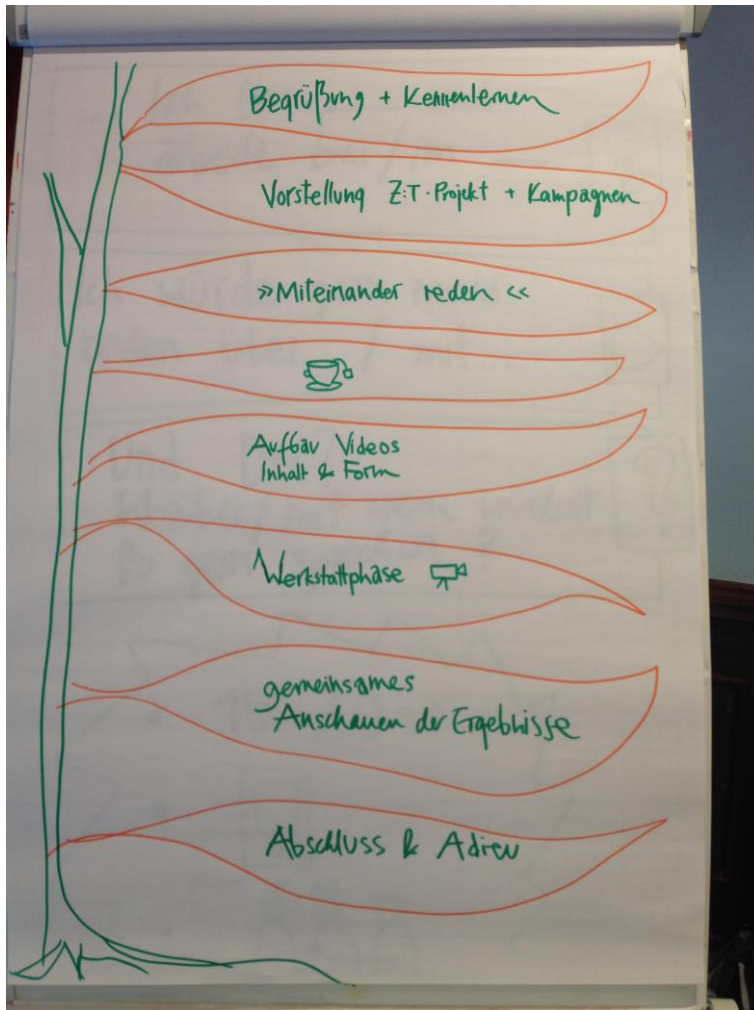 Begrüßung + Kennenlernen
Vorstellung Z:T-Projekt + Kampagnen
»Miteinander reden«
Aufbau Videos
Inhalt & Form
Werkstattphase
gemeinsames
Anschauen der Ergebnisse
Abschluss & Adieu